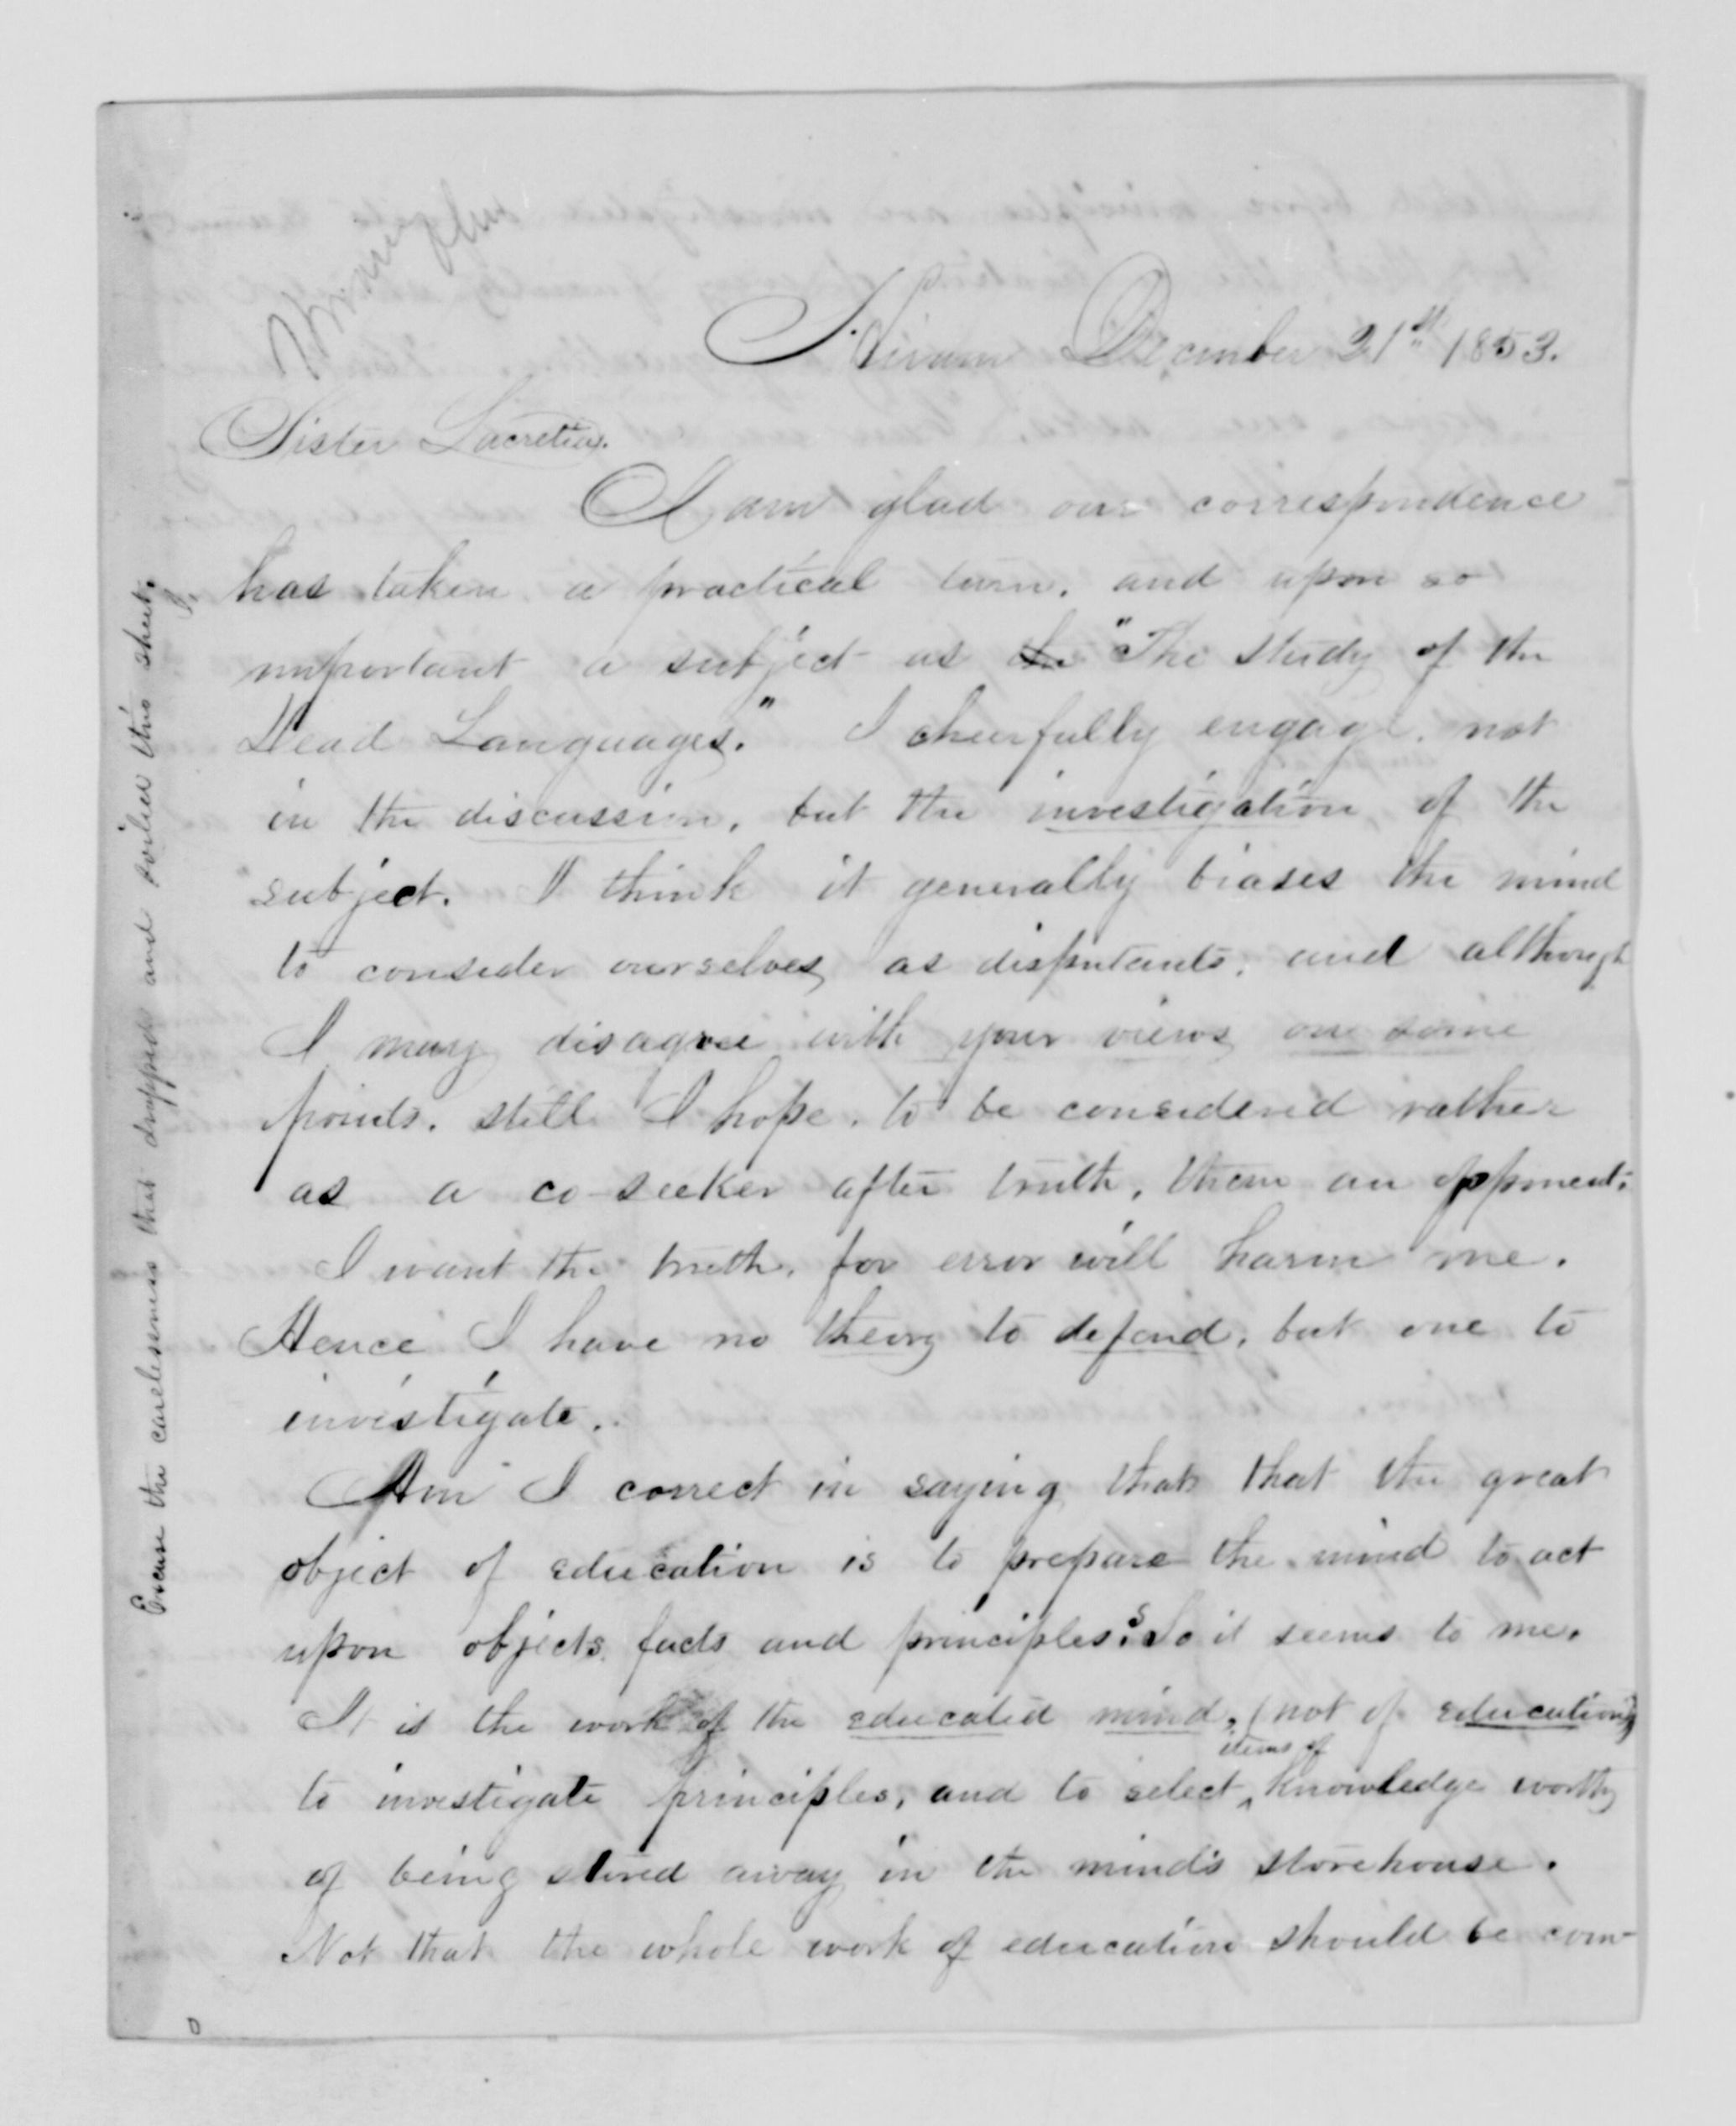 Hiram December 31st 1853.
Sister Lucretia.
I am glad our correspondence
has taken a practical turn, and upon so
important a subject as the "The study of the
Dead Languages." I cheerfully engage, not
in the discussion, but the investigation of the
subject. I think it generally biases the mind
to consider ourselves as disputants, and although
I may disagree with your views on some
points, still I hope, to be considered rather
as a co-seeker after truth, than an opponent.
I want the truth, for error will harm me.
Hence I have no theory to defend, but one to
investigate.
Am I correct in saying that that the great
object of education is to prepare the mind to act
upon objects, facts and principles? So it seems to me.
It is the work of the educated mind, (not of education)
to investigate principles, and to select items of knowledge worthy
of being stored away in the mind's storehouse.
Not that the whole work of education should be com-
Excuse the carelessness that dropped and soiled this sheet.